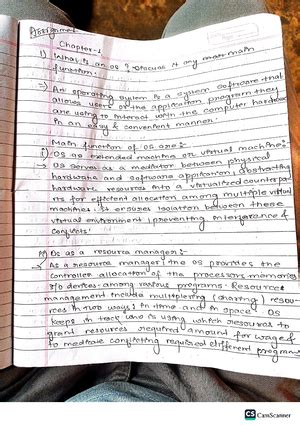 Assignment
Chapter-1
1) What is an OS ? Discuss it any main main
function.
=> An operating system is a system software that
allows users of the application program they
are using to interact with the computer hardware
in an easy & convenient manner.
Main function of OS are:-
i) OS as extended machine or virtual machine:-
=> OS serves as a mediation between physical
hardware and software application, abstracting
hardware resources into a virtualized counterpa
rts for efficient allocation among multiple virtual
machines. It ensures isolation between these
virtual environment, preventing interference &
conflicts.
ii) OS as a resource manager:-
=> As a resource manager, the OS provides the
controlled allocation of the processors, memories
I/O devices, among various programs. Resource
management include multiplexing (sharing) resour-
ces in two ways: in time and in space. OS
keeps in track who is using which resources to
grant resources required amount for
to meditate conflicting required different program
CS CamScanner